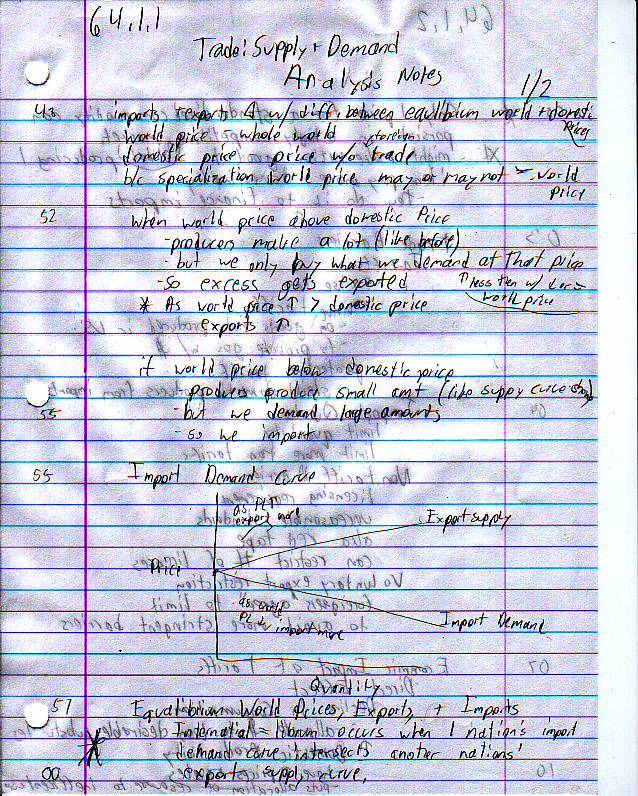 64,1,1
Trade: Supply + Demand
Analysis Notes
1/2
48 imports + exports Δ w/ diff. between equlibium world + domesti
Prices
world price whole world
foreign
domestic price price w/o trade
b/c specialization world price may or may not = world
price
52 when world price above domestic Price
-producers make a lot (like before)
-but we only buy what we demand at That price
-so excess gets exported
↑ less then w/
world price
* As world price ↑ > domestic price
exports ↑
if world price below domestic price
-producers produce small amt (like suppy curve
55 -but we demand large amounts
-so we import
55 Import Demand Curve
as PL↑
export more
Export supply
Price
as world
PL↓ import more
Import Demand
Quantity
57 Equalibrium World Prices, Exports, + Imports
Internatial =librium occurs when 1 nation's import
demand curve intersects another nations'
00 export supply curve.